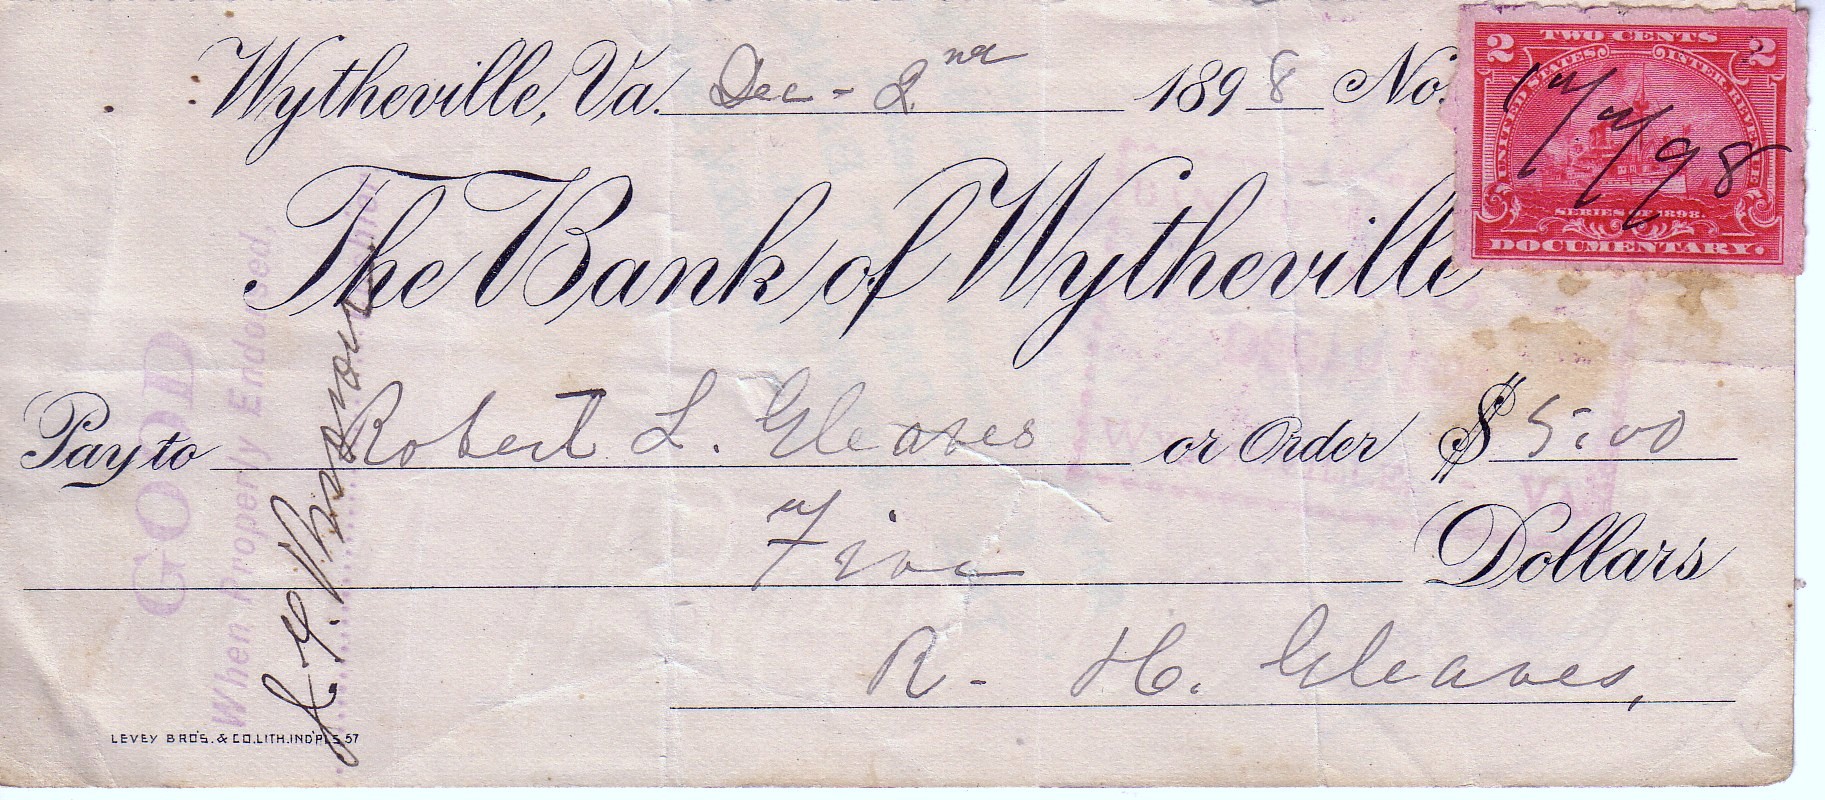 Wytheville, Va. Dec - 2nd 1898 No.
2 TWO CENTS 2
UNITED STATES INTER. REVENUE
98
SERIES OF 1898.
DOCUMENTARY.
The Bank of Wytheville
Pay to Robert L. Gleaves or Order $ 5.00
Five Dollars
R. H. Gleaves,
GOOD
When Properly Endorsed,
Cashier
LEVEY BRO'S. & CO. LITH. IND'PLS 57